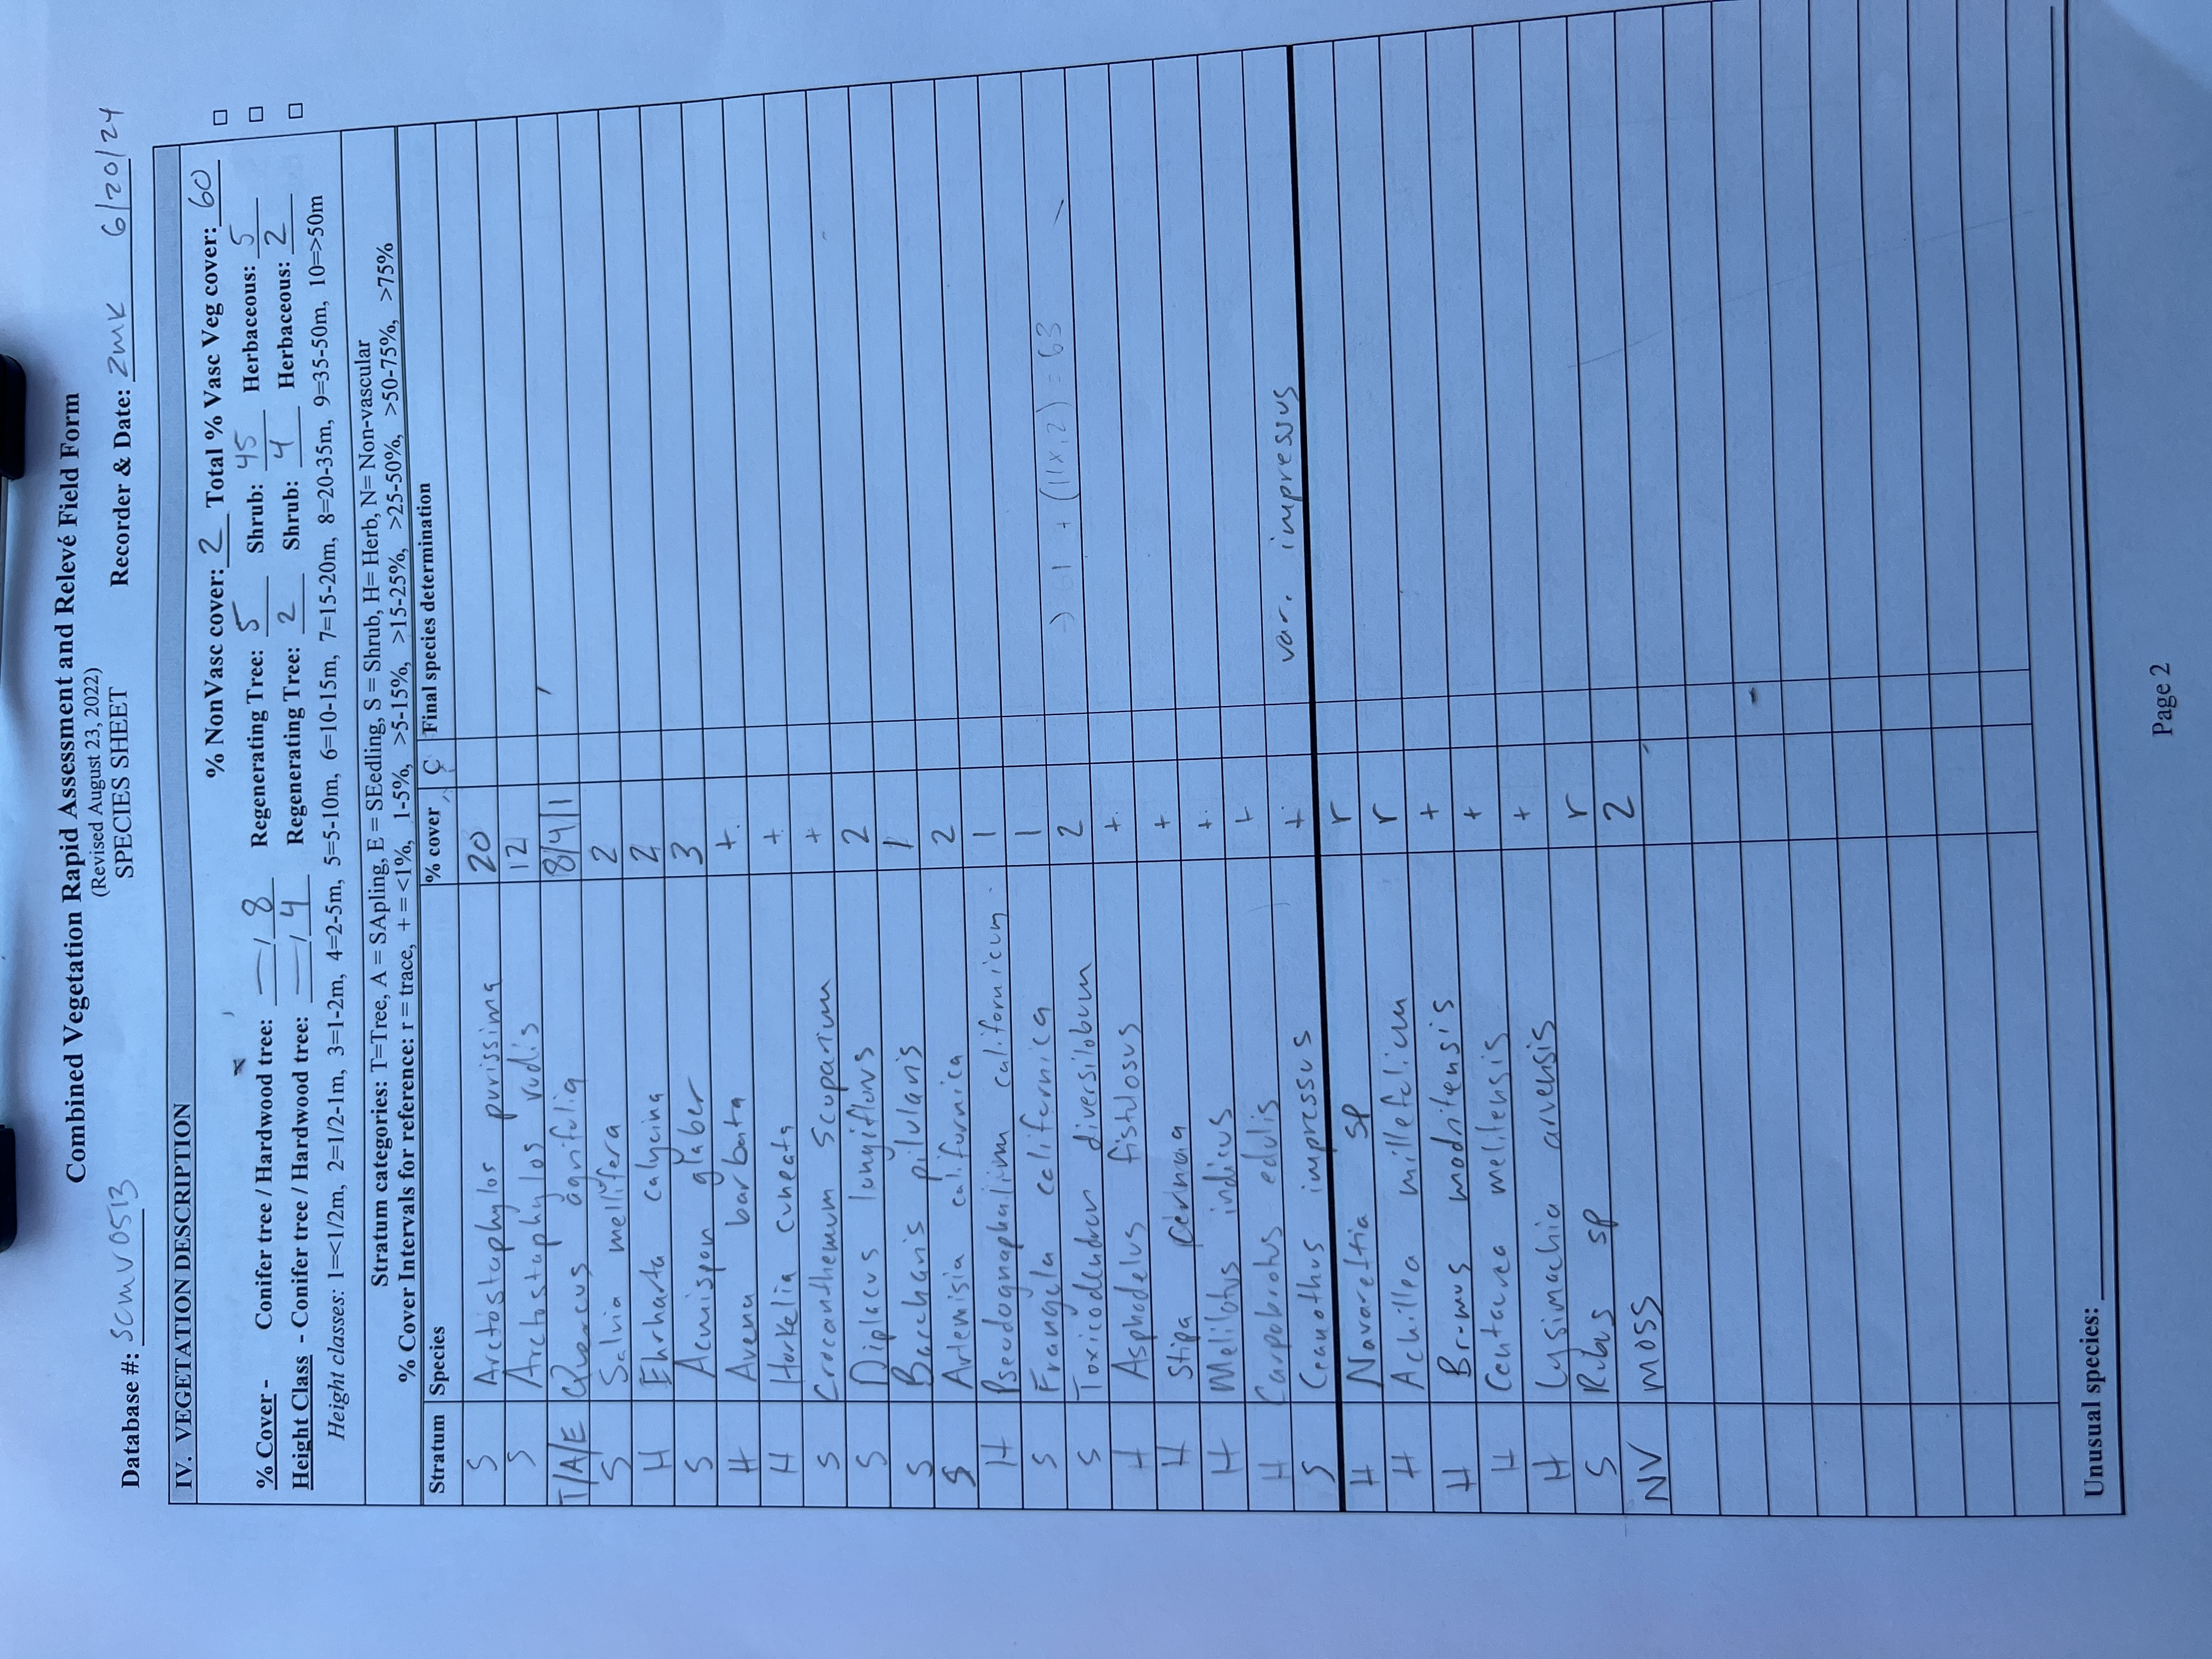 Combined Vegetation Rapid Assessment and Relevé Field Form
(Revised August 23, 2022)
SPECIES SHEET
Database #: SCMV0513 Recorder & Date: ZMK 6/20/24
IV. VEGETATION DESCRIPTION
% NonVasc cover: 2 Total % Vasc Veg cover: 60 □
% Cover - Conifer tree / Hardwood tree: — / 8 Regenerating Tree: 5 Shrub: 45 Herbaceous: 5 □
Height Class - Conifer tree / Hardwood tree: — / 4 Regenerating Tree: 2 Shrub: 4 Herbaceous: 2 □
Height classes: 1=<1/2m, 2=1/2-1m, 3=1-2m, 4=2-5m, 5=5-10m, 6=10-15m, 7=15-20m, 8=20-35m, 9=35-50m, 10=>50m
Stratum categories: T=Tree, A = SApling, E = SEedling, S = Shrub, H= Herb, N= Non-vascular
% Cover Intervals for reference: r = trace, + = <1%, 1-5%, >5-15%, >15-25%, >25-50%, >50-75%, >75%
Stratum Species % cover C Final species determination
S Arctostaphylos purissima 20
S Arctostaphylos rudis 12
T/A/E Quercus agrifolia 8/4/1
S Salvia mellifera 2
H Ehrharta calycina 2
S Acmispon glaber 3
H Avena barbata +
H Horkelia cuneata +
S Crocanthemum scoparium +
S Diplacus longiflorus 2
S Baccharis pilularis 1
S Artemisia californica 2
H Pseudognaphalium californicum 1
S Frangula californica 1
S Toxicodendron diversilobum 2 → 61 + (11x.2) = 63
H Asphodelus fistulosus +
H Stipa cernua +
H Melilotus indicus +
H Carpobrotus edulis +
S Ceanothus impressus + var. impressus
H Navarettia sp r
H Achillea millefolium r
H Bromus madritensis +
H Centaurea melitensis +
H Lysimachia arvensis +
S Rubus sp r
NV moss 2
Unusual species:
Page 2